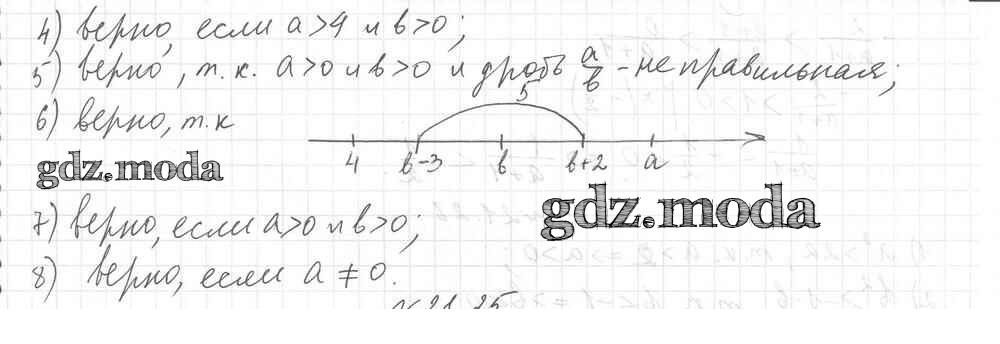 4) верно, если a>4 и в>0;
5) верно, т.к. a>0 и в>0 и дробь a/в - не правильная;
6) верно, т.к
5
4 в-3 в в+2 a
gdz.moda
gdz.moda
7) верно, если a>0 и в>0;
8) верно, если a ≠ 0.